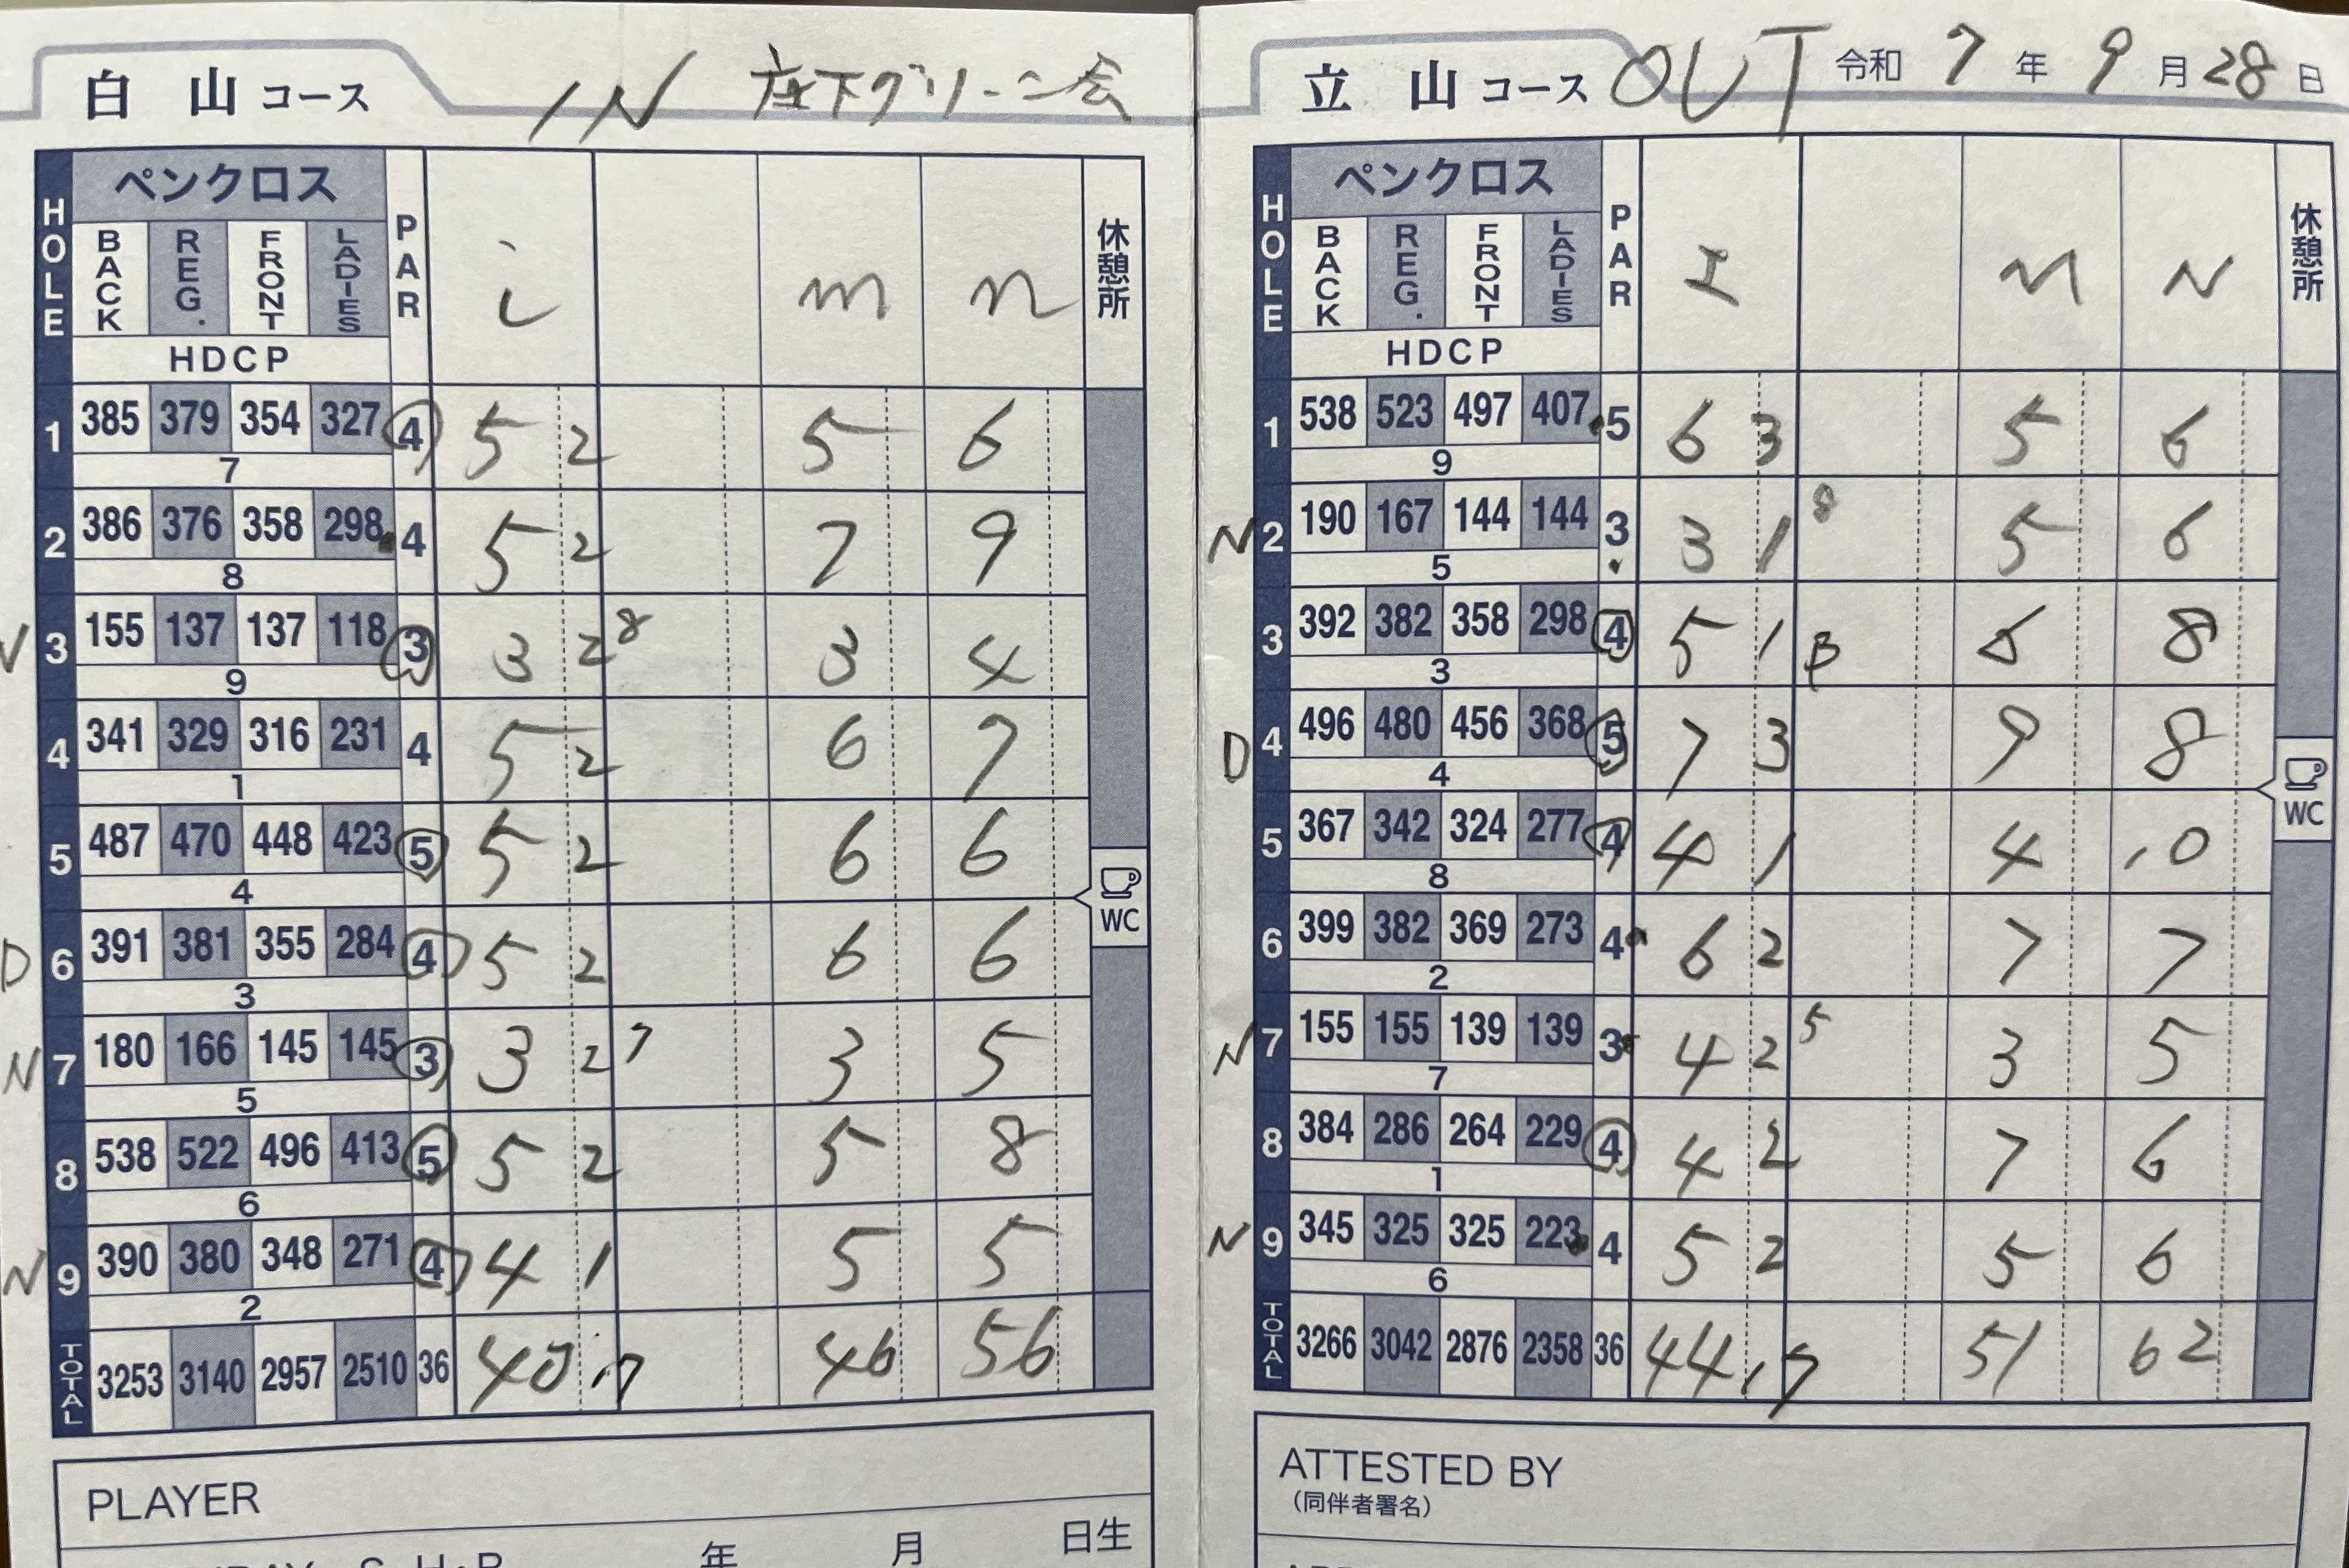 白 山 コース IN 座下グリーン会
HOLE ペンクロス PAR i m n 休憩所
BACK REG. FRONT LADIES
HDCP
1 385 379 354 327 4 5 2 5 6
7
2 386 376 358 298 4 5 2 7 9
8
N 3 155 137 137 118 3 3 2 8 3 4
9
4 341 329 316 231 4 5 2 6 7
1
5 487 470 448 423 5 5 2 6 6
4
WC
D 6 391 381 355 284 4 5 2 6 6
3
N 7 180 166 145 145 3 3 2 7 3 5
5
8 538 522 496 413 5 5 2 5 8
6
N 9 390 380 348 271 4 4 1 5 5
2
TOTAL 3253 3140 2957 2510 36 40 17 46 56
PLAYER
年 月 日生
立 山 コース OUT 令和 7 年 9 月 28 日
HOLE ペンクロス PAR I M N 休憩所
BACK REG. FRONT LADIES
HDCP
1 538 523 497 407 5 6 3 5 6
9
N 2 190 167 144 144 3 3 1 8 5 6
5
3 392 382 358 298 4 5 1 B 6 8
3
D 4 496 480 456 368 5 7 3 9 8
4
WC
5 367 342 324 277 4 4 1 4 10
8
6 399 382 369 273 4 6 2 7 7
2
N 7 155 155 139 139 3 4 2 5 3 5
7
8 384 286 264 229 4 4 2 7 6
1
N 9 345 325 325 223 4 5 2 5 6
6
TOTAL 3266 3042 2876 2358 36 44 17 51 62
ATTESTED BY
(同伴者署名)